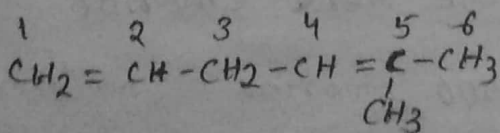 1 2 3 4 5 6
CH2 = CH - CH2 - CH = C - CH3
CH3